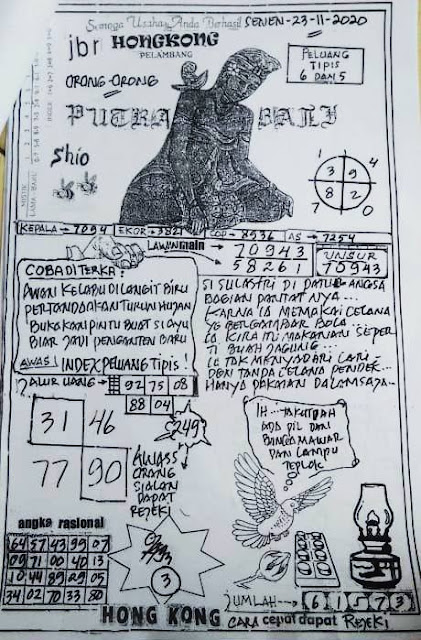 Semoga Usaha Anda Berhasil SENEN-23-11-2020
jbr HONGKONG
PELAMBANG
ORONG-ORONG
PELUANG
TIPIS
6 DAN 5
PUTRA BALI
Shio
1 4
3 9
8 2
7 0
KEPALA → 7094 EKOR → 3821 COP → 8936 AS → 7254
LAWAN main 70943
58261
UNSUR
70943
COBA DITERKA:
AWAN KELABU DI LANGIT BIRU
PERTANDA AKAN TURUN HUJAN
BUKAKAN PINTU BUAT SI AYU
BIAR JADI PENGANTEN BARU
AWAS! INDEX PELUANG TIPIS!
SI SULASTRI DI PATUK ANGSA
BAGIAN PANTAT NYA...
KARNA IA MEMAKAI CELANA
YG BERGAMBAR BOLA...
IA KIRA ITU MAKANAN SEPER
TI BUAH JAGUNG.
IA TAK MENYADARI LARI
DAN TANPA CELANA PENDEK...
HANYA PAKAIAN DALAM SAJA...
JALUR UANG → 92 75 08
88 04
249
31 46
77 90
AWASS
ORANG
SIALAN
DAPAT
REJEKI
IH...TAKUTLAH
ADA PIL DAN
BUNGA MAWAR
DAN LAMPU
TEPLOK
angka rasional
64 57 43 99 07
09 71 00 40 13
10 44 89 29 05
34 02 70 33 80
3
JUMLAH → 6 1 5 7 3
HONG KONG CARA cepat dapat REJEKI